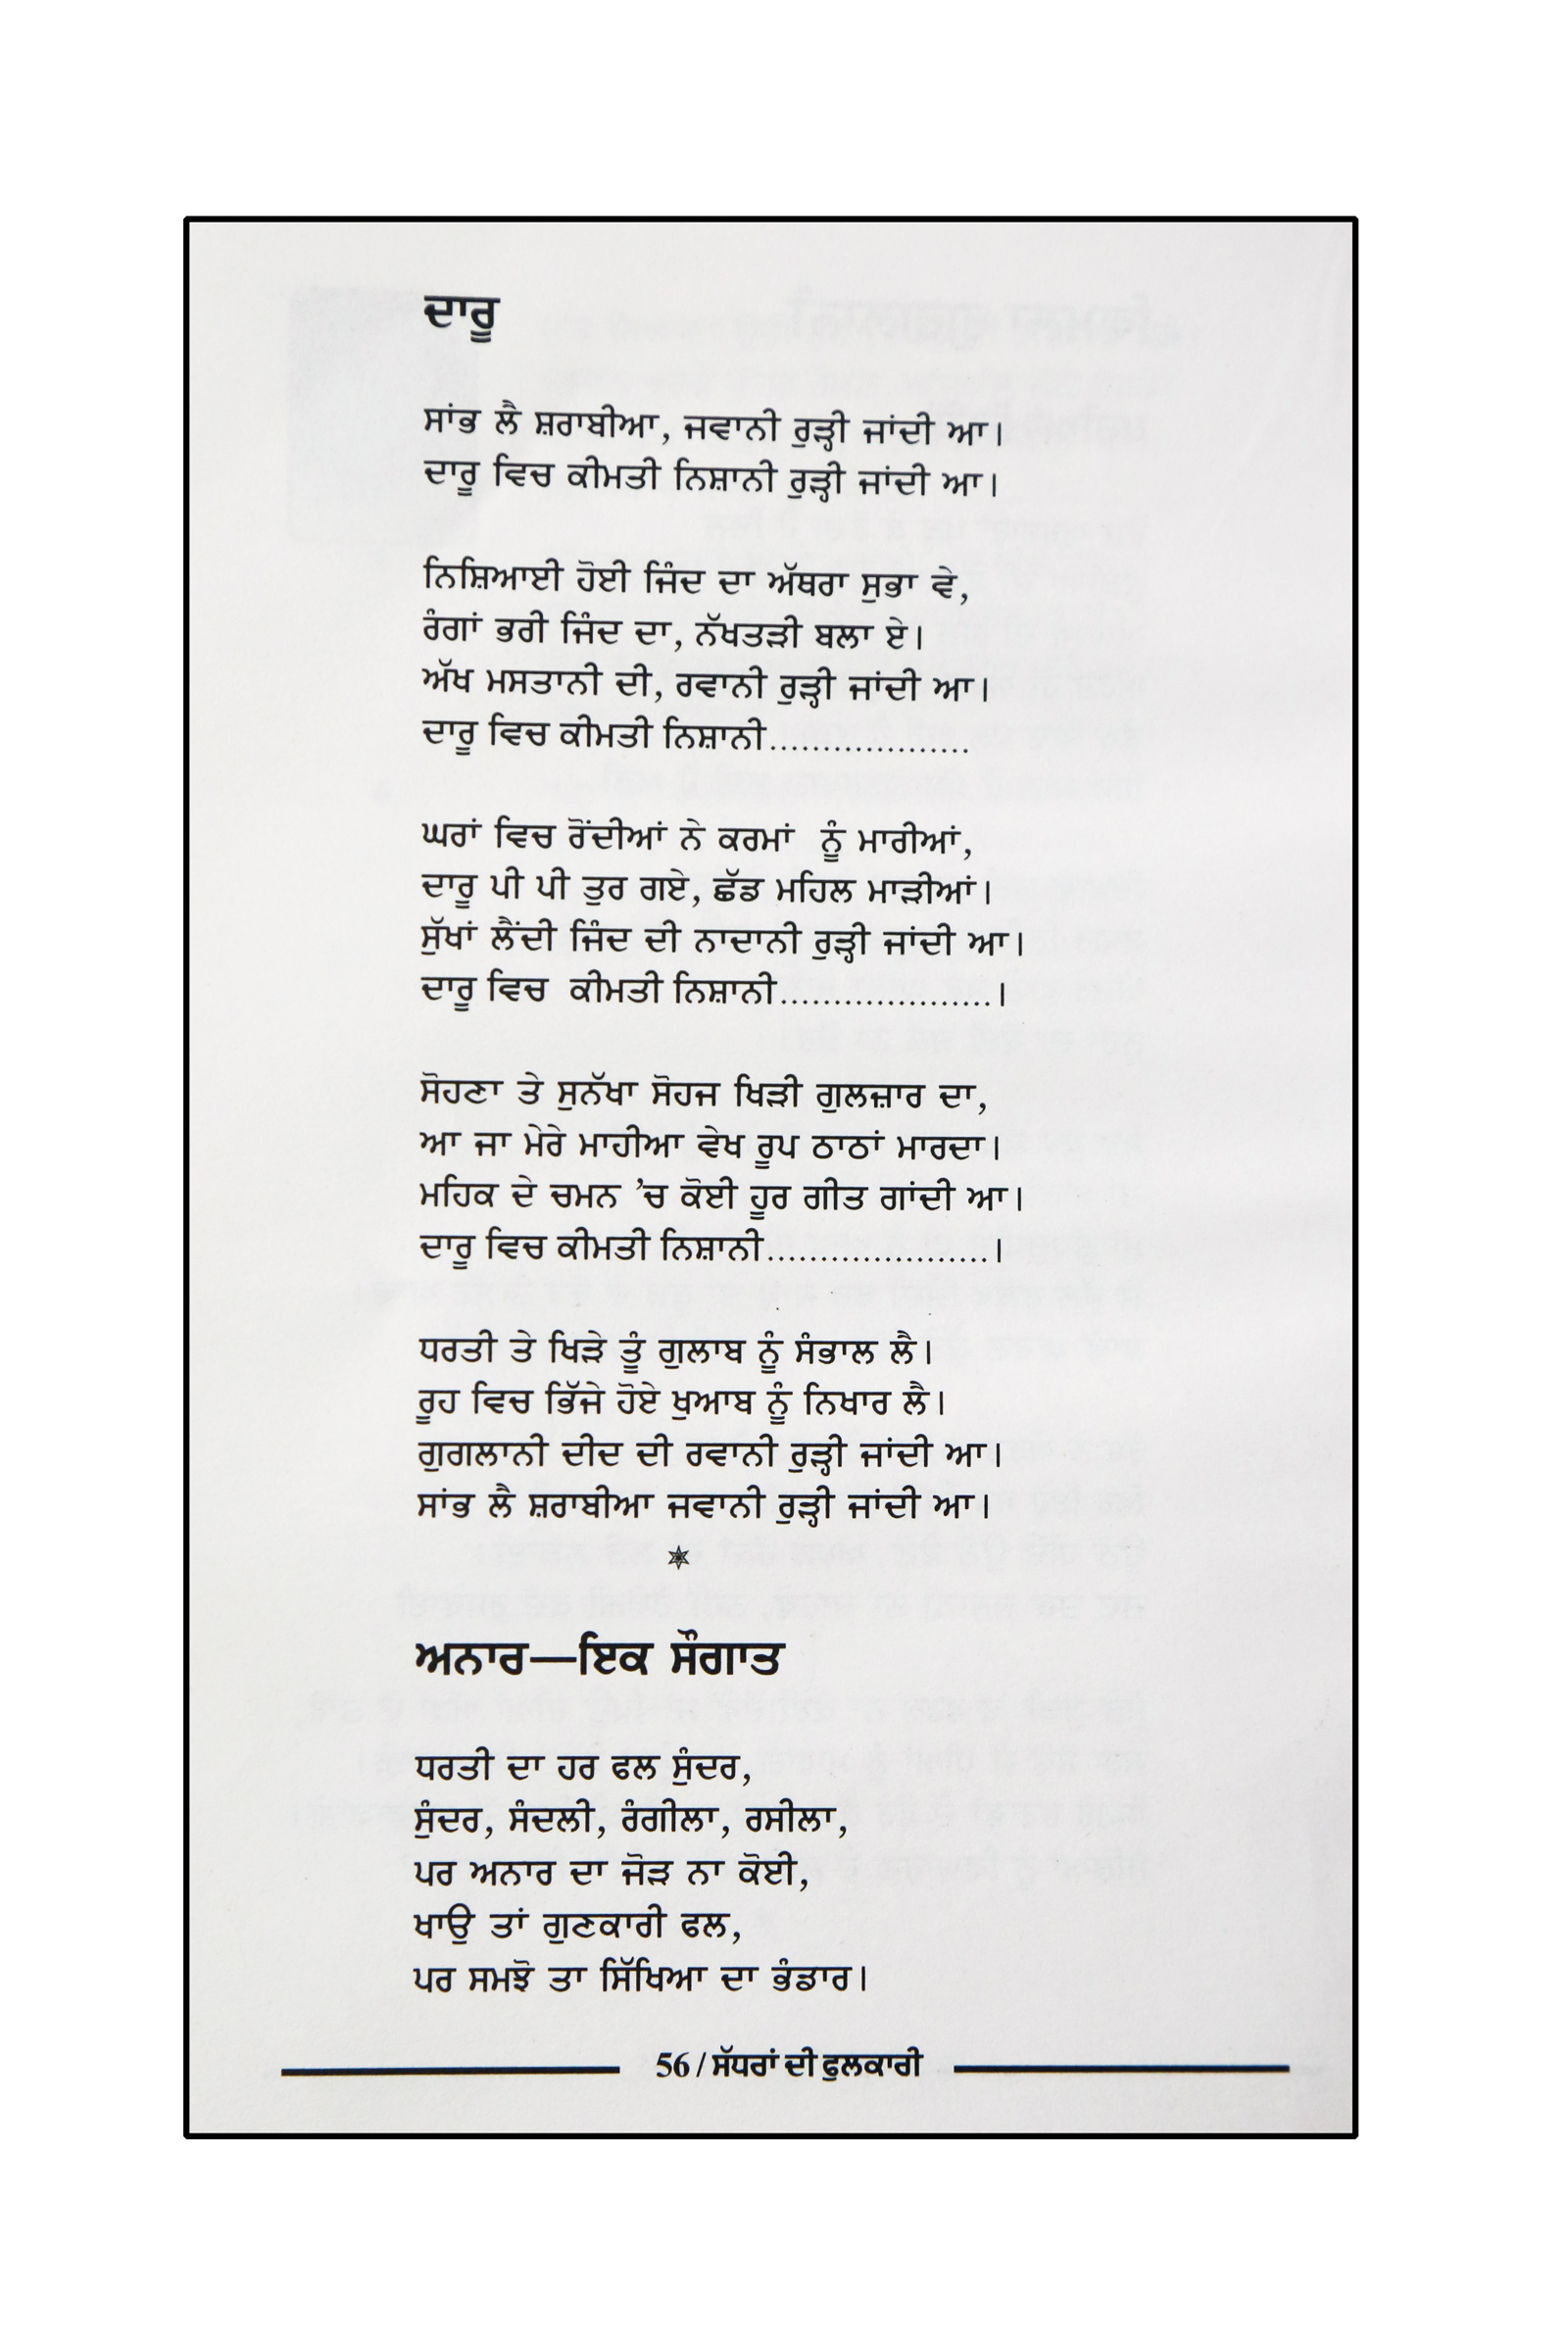 ਦਾਰੂ
ਸਾਂਭ ਲੈ ਸ਼ਰਾਬੀਆ, ਜਵਾਨੀ ਰੁੜ੍ਹੀ ਜਾਂਦੀ ਆ।
ਦਾਰੂ ਵਿਚ ਕੀਮਤੀ ਨਿਸ਼ਾਨੀ ਰੁੜ੍ਹੀ ਜਾਂਦੀ ਆ।
ਨਿਸ਼ਿਆਈ ਹੋਈ ਜਿੰਦ ਦਾ ਅੱਥਰਾ ਸੁਭਾ ਵੇ,
ਰੰਗਾਂ ਭਰੀ ਜਿੰਦ ਦਾ, ਨੱਖਤੜੀ ਬਲਾ ਏ।
ਅੱਖ ਮਸਤਾਨੀ ਦੀ, ਰਵਾਨੀ ਰੁੜ੍ਹੀ ਜਾਂਦੀ ਆ।
ਦਾਰੂ ਵਿਚ ਕੀਮਤੀ ਨਿਸ਼ਾਨੀ...................
ਘਰਾਂ ਵਿਚ ਰੋਂਦੀਆਂ ਨੇ ਕਰਮਾਂ ਨੂੰ ਮਾਰੀਆਂ,
ਦਾਰੂ ਪੀ ਪੀ ਤੁਰ ਗਏ, ਛੱਡ ਮਹਿਲ ਮਾੜੀਆਂ।
ਸੁੱਖਾਂ ਲੈਂਦੀ ਜਿੰਦ ਦੀ ਨਾਦਾਨੀ ਰੁੜ੍ਹੀ ਜਾਂਦੀ ਆ।
ਦਾਰੂ ਵਿਚ ਕੀਮਤੀ ਨਿਸ਼ਾਨੀ....................।
ਸੋਹਣਾ ਤੇ ਸੁਨੱਖਾ ਸੋਹਜ ਖਿੜੀ ਗੁਲਜ਼ਾਰ ਦਾ,
ਆ ਜਾ ਮੇਰੇ ਮਾਹੀਆ ਵੇਖ ਰੂਪ ਠਾਠਾਂ ਮਾਰਦਾ।
ਮਹਿਕ ਦੇ ਚਮਨ ’ਚ ਕੋਈ ਹੂਰ ਗੀਤ ਗਾਂਦੀ ਆ।
ਦਾਰੂ ਵਿਚ ਕੀਮਤੀ ਨਿਸ਼ਾਨੀ.....................।
ਧਰਤੀ ਤੇ ਖਿੜੇ ਤੂੰ ਗੁਲਾਬ ਨੂੰ ਸੰਭਾਲ ਲੈ।
ਰੂਹ ਵਿਚ ਭਿੱਜੇ ਹੋਏ ਖੁਆਬ ਨੂੰ ਨਿਖਾਰ ਲੈ।
ਗੁਗਲਾਨੀ ਦੀਦ ਦੀ ਰਵਾਨੀ ਰੁੜ੍ਹੀ ਜਾਂਦੀ ਆ।
ਸਾਂਭ ਲੈ ਸ਼ਰਾਬੀਆ ਜਵਾਨੀ ਰੁੜ੍ਹੀ ਜਾਂਦੀ ਆ।
ਅਨਾਰ—ਇਕ ਸੌਗਾਤ
ਧਰਤੀ ਦਾ ਹਰ ਫਲ ਸੁੰਦਰ,
ਸੁੰਦਰ, ਸੰਦਲੀ, ਰੰਗੀਲਾ, ਰਸੀਲਾ,
ਪਰ ਅਨਾਰ ਦਾ ਜੋੜ ਨਾ ਕੋਈ,
ਖਾਉ ਤਾਂ ਗੁਣਕਾਰੀ ਫਲ,
ਪਰ ਸਮਝੋ ਤਾ ਸਿੱਖਿਆ ਦਾ ਭੰਡਾਰ।
56 / ਸੱਧਰਾਂ ਦੀ ਫੁਲਕਾਰੀ